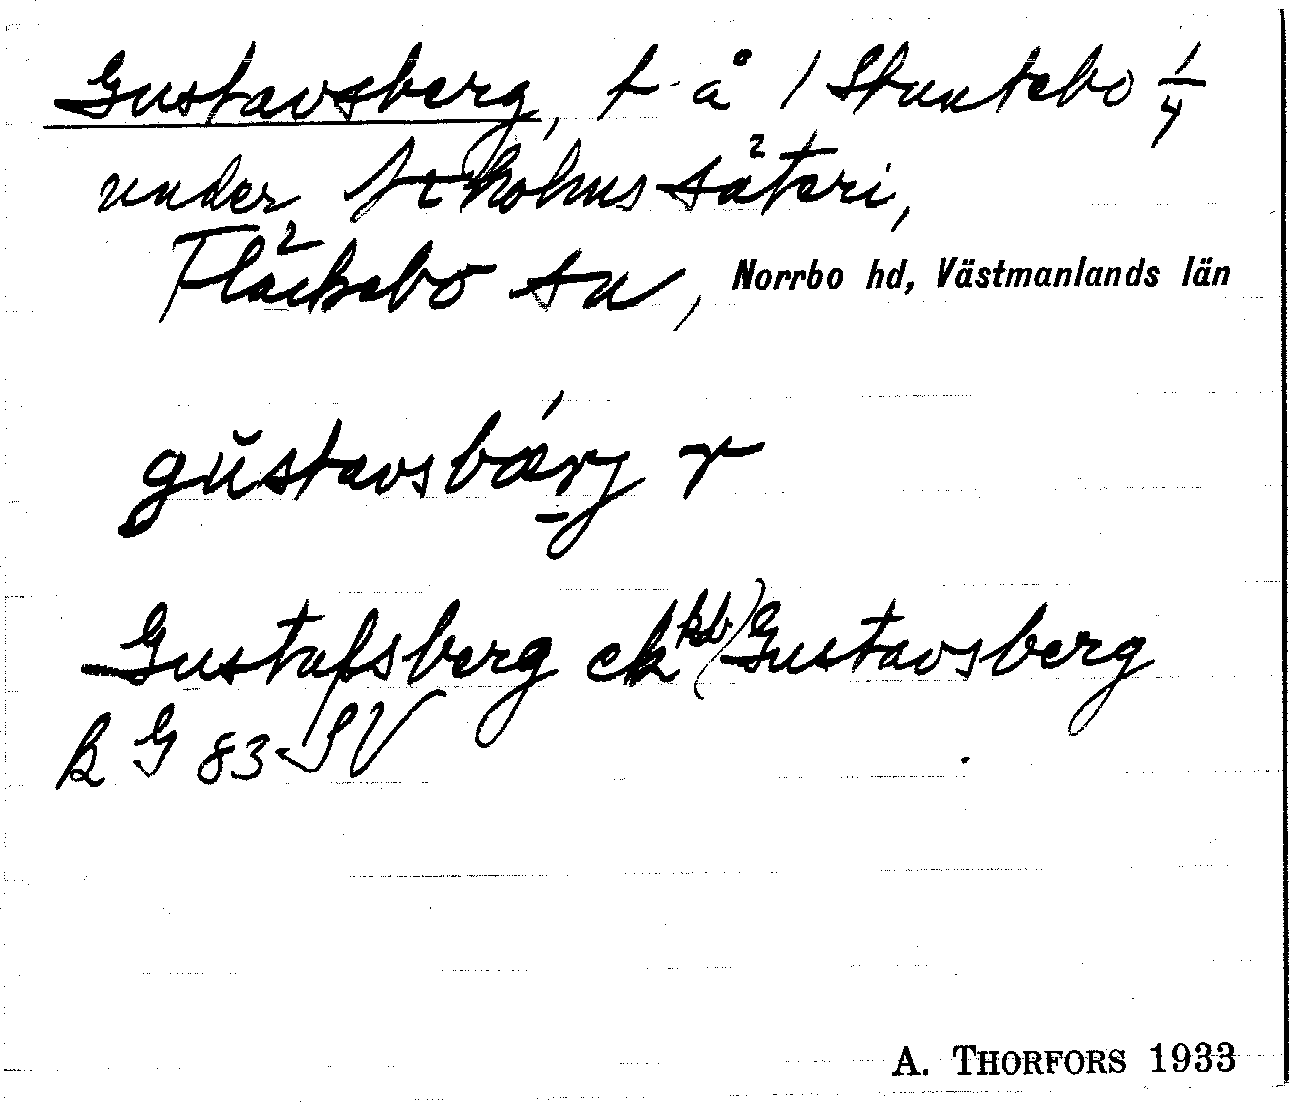 Gustavsberg, t å / Stuntebo 1/4
under Ärholms säteri,
Fläckebo sn, Norrbo hd, Västmanlands län
gŭstavsbærj r
Gustafsberg ek kb) Gustavsberg
R G 83 SV
A. THORFORS 1933